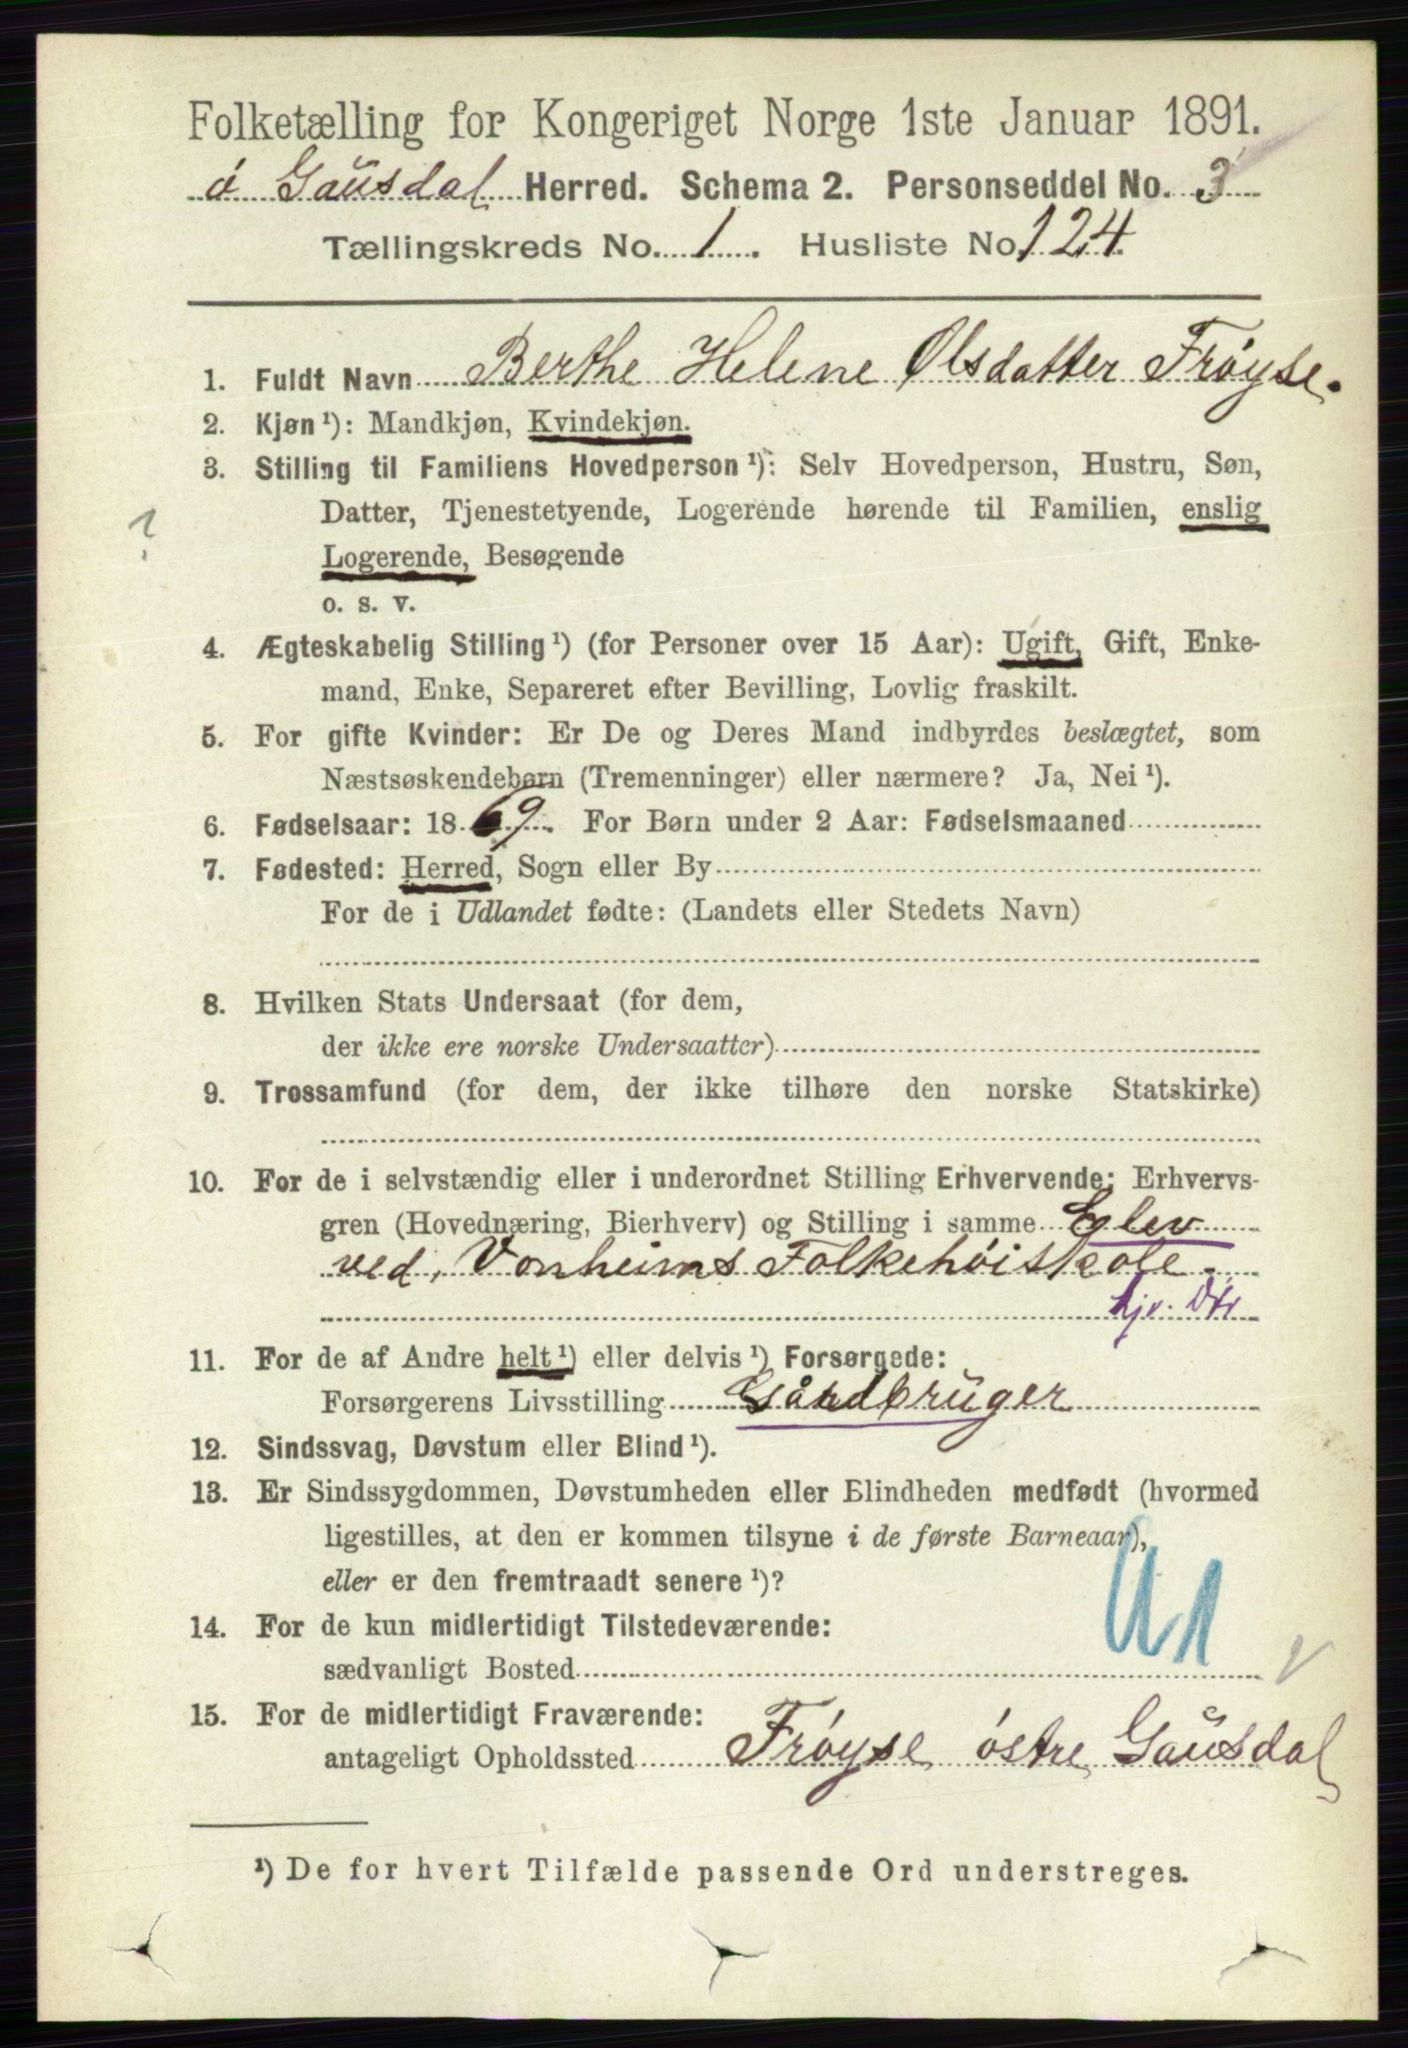 Folketælling for Kongeriget Norge 1ste Januar 1891.
ó Gausdal Herred. Schema 2. Personseddel No. 3
Tællingskreds No. 1. Husliste No. 124.
1. Fuldt Navn Berthe Helene Olsdatter Fróyse.
2. Kjøn ¹): Mandkjøn, Kvindekjøn.
3. Stilling til Familiens Hovedperson ¹): Selv Hovedperson, Hustru, Søn,
Datter, Tjenestetyende, Logerende hørende til Familien, enslig
?
Logerende, Besøgende
o. s. v.
4. Ægteskabelig Stilling ¹) (for Personer over 15 Aar): Ugift, Gift, Enke-
mand, Enke, Separeret efter Bevilling, Lovlig fraskilt.
5. For gifte Kvinder: Er De og Deres Mand indbyrdes beslægtet, som
Næstsøskendebørn (Tremenninger) eller nærmere? Ja, Nei ¹).
6. Fødselsaar: 1869. For Børn under 2 Aar: Fødselsmaaned
7. Fødested: Herred, Sogn eller By
For de i Udlandet fødte: (Landets eller Stedets Navn)
8. Hvilken Stats Undersaat (for dem,
der ikke ere norske Undersaatter)
9. Trossamfund (for dem, der ikke tilhøre den norske Statskirke)
10. For de i selvstændig eller i underordnet Stilling Erhvervende: Erhvervs-
gren (Hovednæring, Bierhverv) og Stilling i samme Eglev
ved, Vonheims Folkehóiskole.
hjv. Dtr
11. For de af Andre helt ¹) eller delvis ¹) Forsørgede:
Forsørgerens Livsstilling Gårdbruger
12. Sindssvag, Døvstum eller Blind ¹).
13. Er Sindssygdommen, Døvstumheden eller Blindheden medfødt (hvormed
ligestilles, at den er kommen tilsyne i de første Barneaar),
eller er den fremtraadt senere ¹)?
14. For de kun midlertidigt Tilstedeværende:
sædvanligt Bosted
15. For de midlertidigt Fraværende:
antageligt Opholdssted Fróyse óstre Gausdal
¹) De for hvert Tilfælde passende Ord understreges.